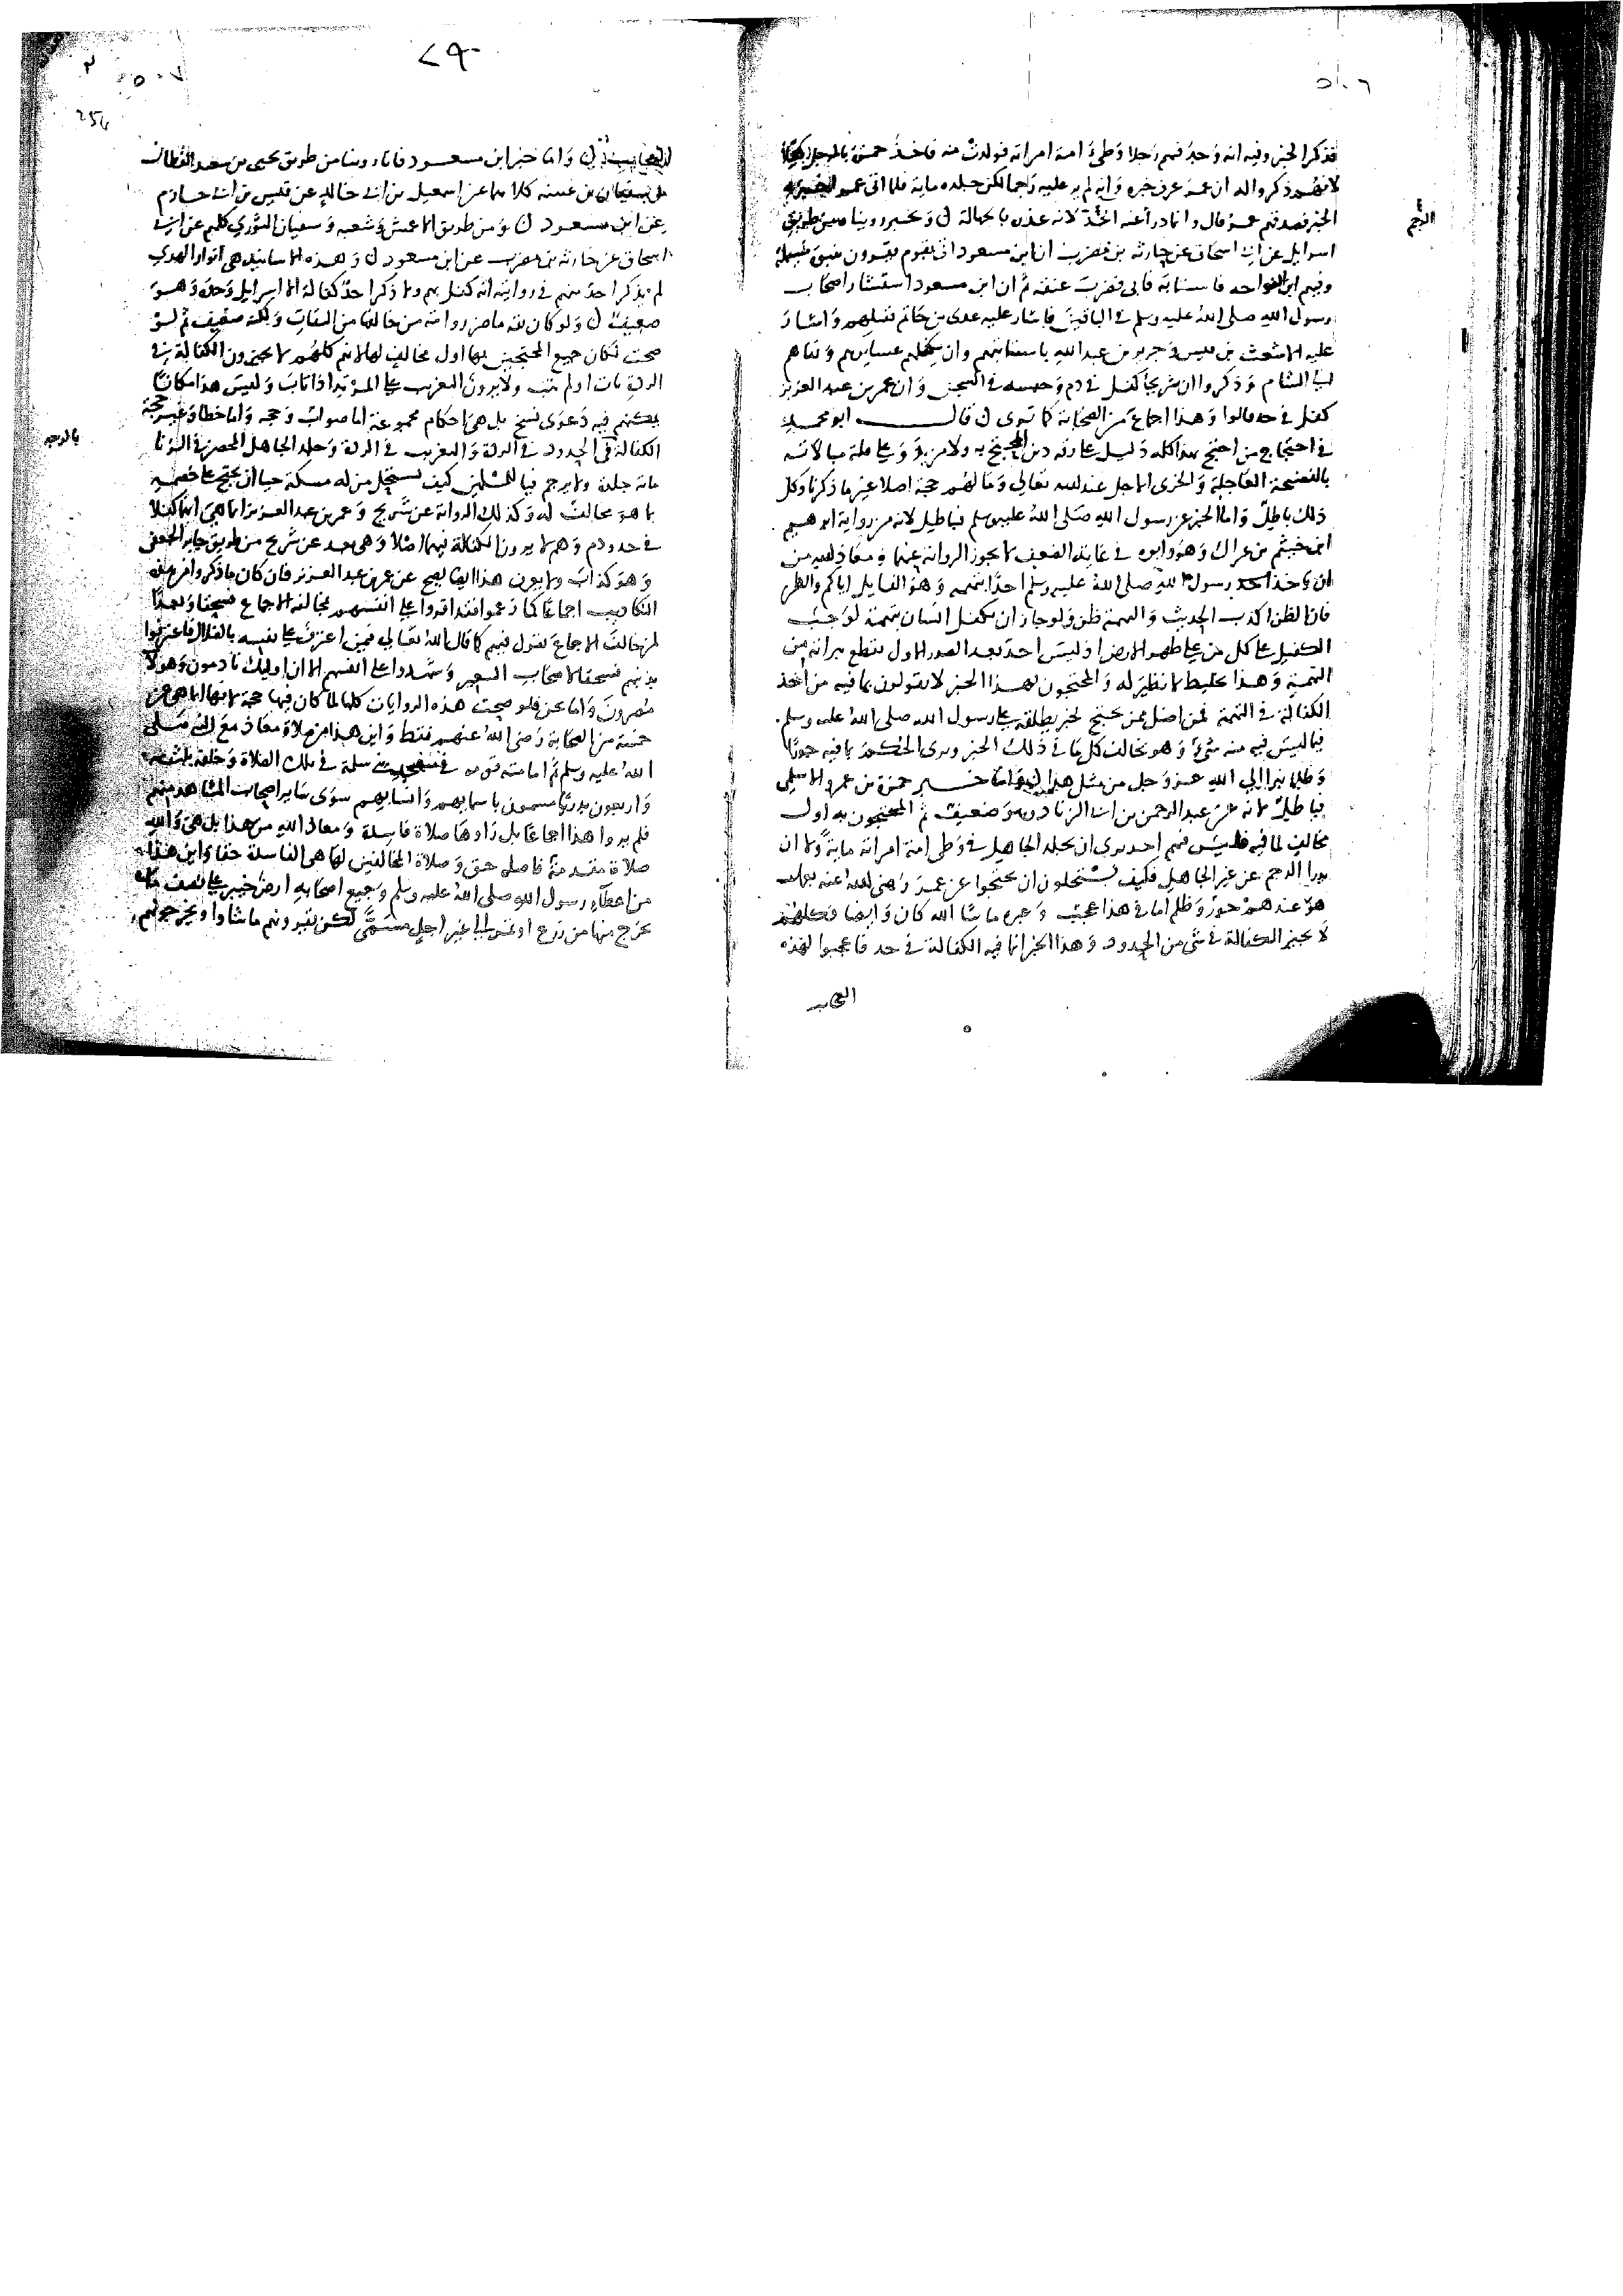 ٥٠٦
فذكر الخبر وفيه انه وجد فيهم رجلا وطئ امة امراته فولدت منه فاخذ حمزة بالرجل كفيلا
لانهم ذكروا له ان عمر عرف خبره وانه لم ير عليه رجما لكن جلده ماية فلما اتى عمر اخبره
الخبر فصدقهم عمر قال وانما درا عنه الحد لانه عذره بالجهالة ن وخبر روينا من طريق
الرجم
اسرايل عن ابي اسحاق عن حارثه بن مضرب ان ابن مسعود اتى بقوم يقرون بنبوة مسيلمة
وفيهم ابن النواحه فاستتابه فابى فضرب عنقه ثم ان ابن مسعود استشار اصحاب
رسول الله صلى الله عليه وسلم في الباقين فاشار عليه عدى بن حاتم بقتلهم واشار
عليه الاشعث بن قيس وجرير بن عبد الله باستتابتهم وان يكفلهم عشايرهم ونفاهم
الى الشام وذكروا ان شريحا كفل في دم وحبسه في السجن وان عمر بن عبد العزيز
كفل في حد قالوا وهذا اجماع من الصحابة كما ترى ن قال ابو محمد
في احتجاج من احتج بهذا كله دليل على رقة دين المحتج به ولا مزيد وعلى قلة مبالاته
بالفضيحة العاجلة والخزى الاجل عند الله تعالى وما لهم حجة اصلا غير ما ذكرنا وكل
ذلك باطل واما الخبر عن رسول الله صلى الله عليه وسلم فباطل لانه من رواية ابرهيم
ابن خيثم بن عراك وهو وابوه في غاية الضعف لا يجوز الرواية عنهما ومعاذ الله من
ان ياخذ رسول الله صلى الله عليه وسلم احدا بتهمه وهو القايل اياكم والظن
فان الظن اكذب الحديث والتهمة ظن ولو جاز ان يكفل انسان بتهمة لوجب
الكفيل على كل من على ظهر الارض اذ ليس احد بعد الصدر الاول يقطع ببراته من
التهمة وهذا تخليط لا نظير له والمحتجون بهذا الخبر لا يقولون بما فيه من اخذ
الكفالة في التهمة فمن اضل ممن يحتج بخبر يطلقه على رسول الله صلى الله عليه وسلم
فيما ليس فيه منه شئ وهو يخالف كل ما في ذلك الخبر ويرى الحكم بما فيه جورا
وظلما نبرا الى الله عز وجل من مثل هذا ن واما خبر حمزة بن عمرو الاسلمي
فباطل لانه عن عبد الرحمن بن ابي الزناد وهو ضعيف ثم المحتجون به اول
مخالف لما فيه فليس فيهم احد يرى ان يجلد الجاهل في وطى امة امراته ماية ولا ان
يدرا الرجم عن غير الجاهل فكيف يستحلون ان يحتجوا عن عمر رضى الله عنه بعمل
هو عندهم جور وظلم اما في هذا عجب وعبرة ما شا الله كان وايضا فكلهم
لا يجيز الكفالة في شي من الحدود وهذا الخبر انما فيه الكفالة في حد فاعجبوا لهذه
٥٠٧
254
العجايب ن واما خبر ابن مسعود فانا روينا من طريق يحيى بن سعيد القطان
وسفيان بن عيينه كلاهما عن اسمعيل بن ابي خالد عن قيس بن ابي حازم
عن ابن مسعود ن ومن طريق الاعمش وشعبه وسفيان الثوري كلهم عن ابي
اسحاق عن حارثه بن مضرب عن ابن مسعود ن وهذه الاسانيد هي انوار الهدى
لم يذكر احد منهم في روايته انه كفل بهم ولا ذكر احد كفالة الا اسرايل وحده وهو
ضعيف ن ولو كان ثقه ما ضر روايته من خالفها من الثقات ولكنه ضعيف ثم لو
صحت لكان جميع المحتجين بها اول مخالف لها لانهم كلهم لا يجيزون الكفالة في
الردة تاب او لم يتب ولا يرون التغريب على المرتد اذا تاب وليس هذا مكانا
يمكنهم فيه دعوى نسخ بل هي احكام مجموعة اما صواب وحجه واما خطا وغير حجة
الكفالة في الحدود في الردة والتغريب في الردة وجلد الجاهل المحصن في الزنا
ماية جلدة ولا يرجم فيا للمسلمين كيف يستحل من له مسكة حيا ان يحتج على خصمه
بما هو مخالف له وكذلك الرواية عن شريح وعمر بن عبد العزيز انما هي انهما كفلا
في حد ودم وهم لا يرون الكفالة فيهما اصلا وهي بعد عن شريح من طريق جابر الجعفي
وهو كذاب ولا يعرف هذا ايضا يصح عن عمر بن عبد العزيز فان كان ما ذكروا من هذه
التكاذيب اجماعا كما زعموا فقد اقروا على انفسهم بمخالفة الاجماع فسحقا وبعدا
لمن خالف الاجماع نقول فيهم كما قال الله تعالى فيمن اعترف على نفسه بالضلال فاعترفوا
بذنبهم فسحقا لاصحاب السعير وشهدوا على انفسهم الا ان اوليك نادمون وهولا
مصرون واما نحن فلو صحت هذه الروايات كلها لما كان فيها حجة لانها انما هي عن
خمسة من الصحابة رضى الله عنهم فقط واين هذا من صلاة معاذ مع النبي صلى
الله عليه وسلم ثم امامته قومه في بني سلمة في تلك الصلاة وخلفه ثلثة
واربعون بدريا مسمون باسمايهم وانسابهم سوى ساير اصحاب المشاهد منهم
فلم يروا هذا اجماعا بل راوها صلاة فاسدة ومعاذ الله من هذا بل هي والله
صلاة مقدمة فاضلة حق وصلاة المخالفين لها هي الفاسدة حقا واين هذا
من اعطاء رسول الله صلى الله عليه وسلم وجميع اصحابه ارض خيبر على نصف ما
يخرج منها من زرع او ثمر الى غير اجل مسمى لكن يقرونهم ما شاوا ويخرجونهم